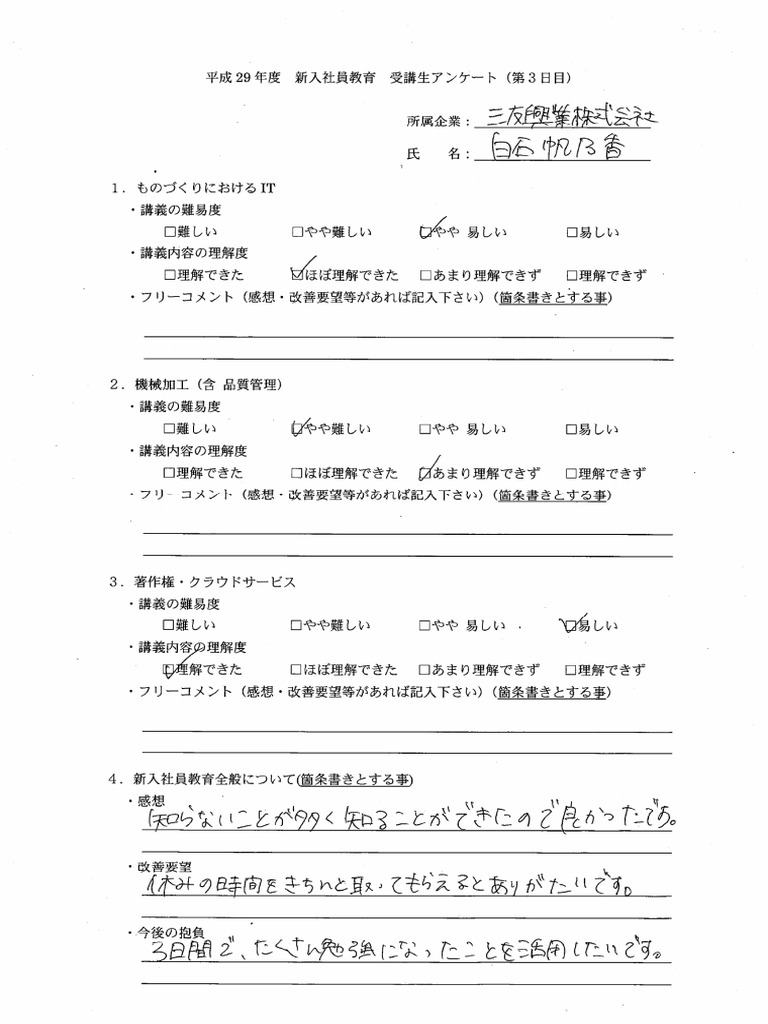 平成29年度 新入社員教育 受講生アンケート（第3日目）
所属企業：三友興業株式会社
氏 名：白石 帆乃香
1．ものづくりにおけるIT
・講義の難易度
□難しい □やや難しい ☑やや 易しい □易しい
・講義内容の理解度
□理解できた ☑ほぼ理解できた □あまり理解できず □理解できず
・フリーコメント（感想・改善要望等があれば記入下さい）（箇条書きとする事）
2．機械加工（含 品質管理）
・講義の難易度
□難しい ☑やや難しい □やや 易しい □易しい
・講義内容の理解度
□理解できた □ほぼ理解できた ☑あまり理解できず □理解できず
・フリーコメント（感想・改善要望等があれば記入下さい）（箇条書きとする事）
3．著作権・クラウドサービス
・講義の難易度
□難しい □やや難しい □やや 易しい ☑易しい
・講義内容の理解度
☑理解できた □ほぼ理解できた □あまり理解できず □理解できず
・フリーコメント（感想・改善要望等があれば記入下さい）（箇条書きとする事）
4．新入社員教育全般について(箇条書きとする事)
・感想
知らないことが多く知ることができたので良かったです。
・改善要望
休みの時間をきちんと取ってもらえるとありがたいです。
・今後の抱負
3日間で、たくさん勉強になったことを活用したいです。